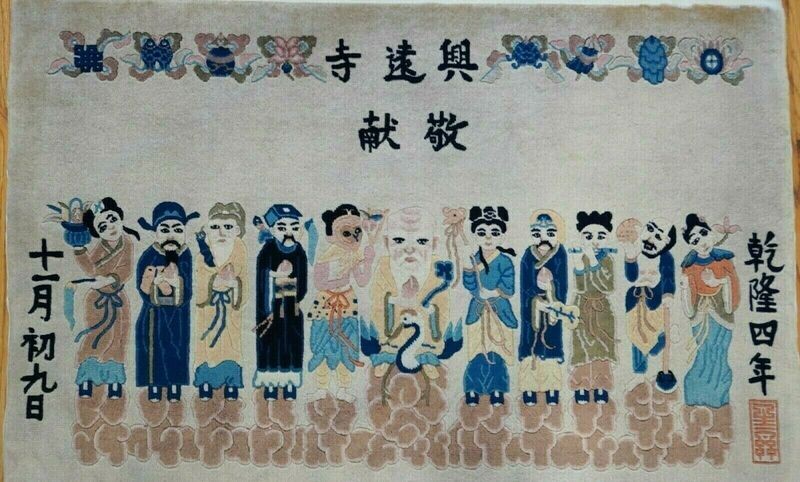 興遠寺
敬献
乾隆四年
十一月初九日